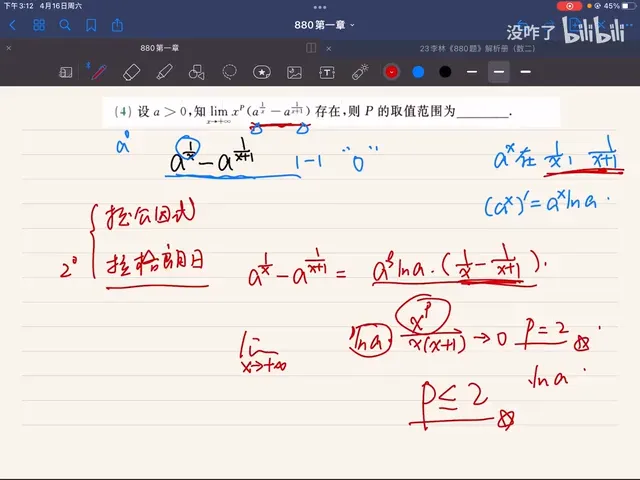 下午3:12 4月16日周六
45%
880第一章
没咋了 bilibili
880第一章
23李林《880题》解析册（数二）
(4) 设 a > 0, 知 lim x→+∞ x^P(a^{1/x} − a^{1/(x+1)}) 存在, 则 P 的取值范围为______.
a^0
a^{1/x} − a^{1/(x+1)} 1−1 "0"
a^x 在 1/x, 1/(x+1)
(a^x)' = a^x ln a.
2° { 提公因式
拉格朗日
a^{1/x} − a^{1/(x+1)} = a^ξ ln a · (1/x − 1/(x+1)).
lim x→+∞ ln a · x^P/(x(x+1)) → 0 P=2
ln a.
P ≤ 2